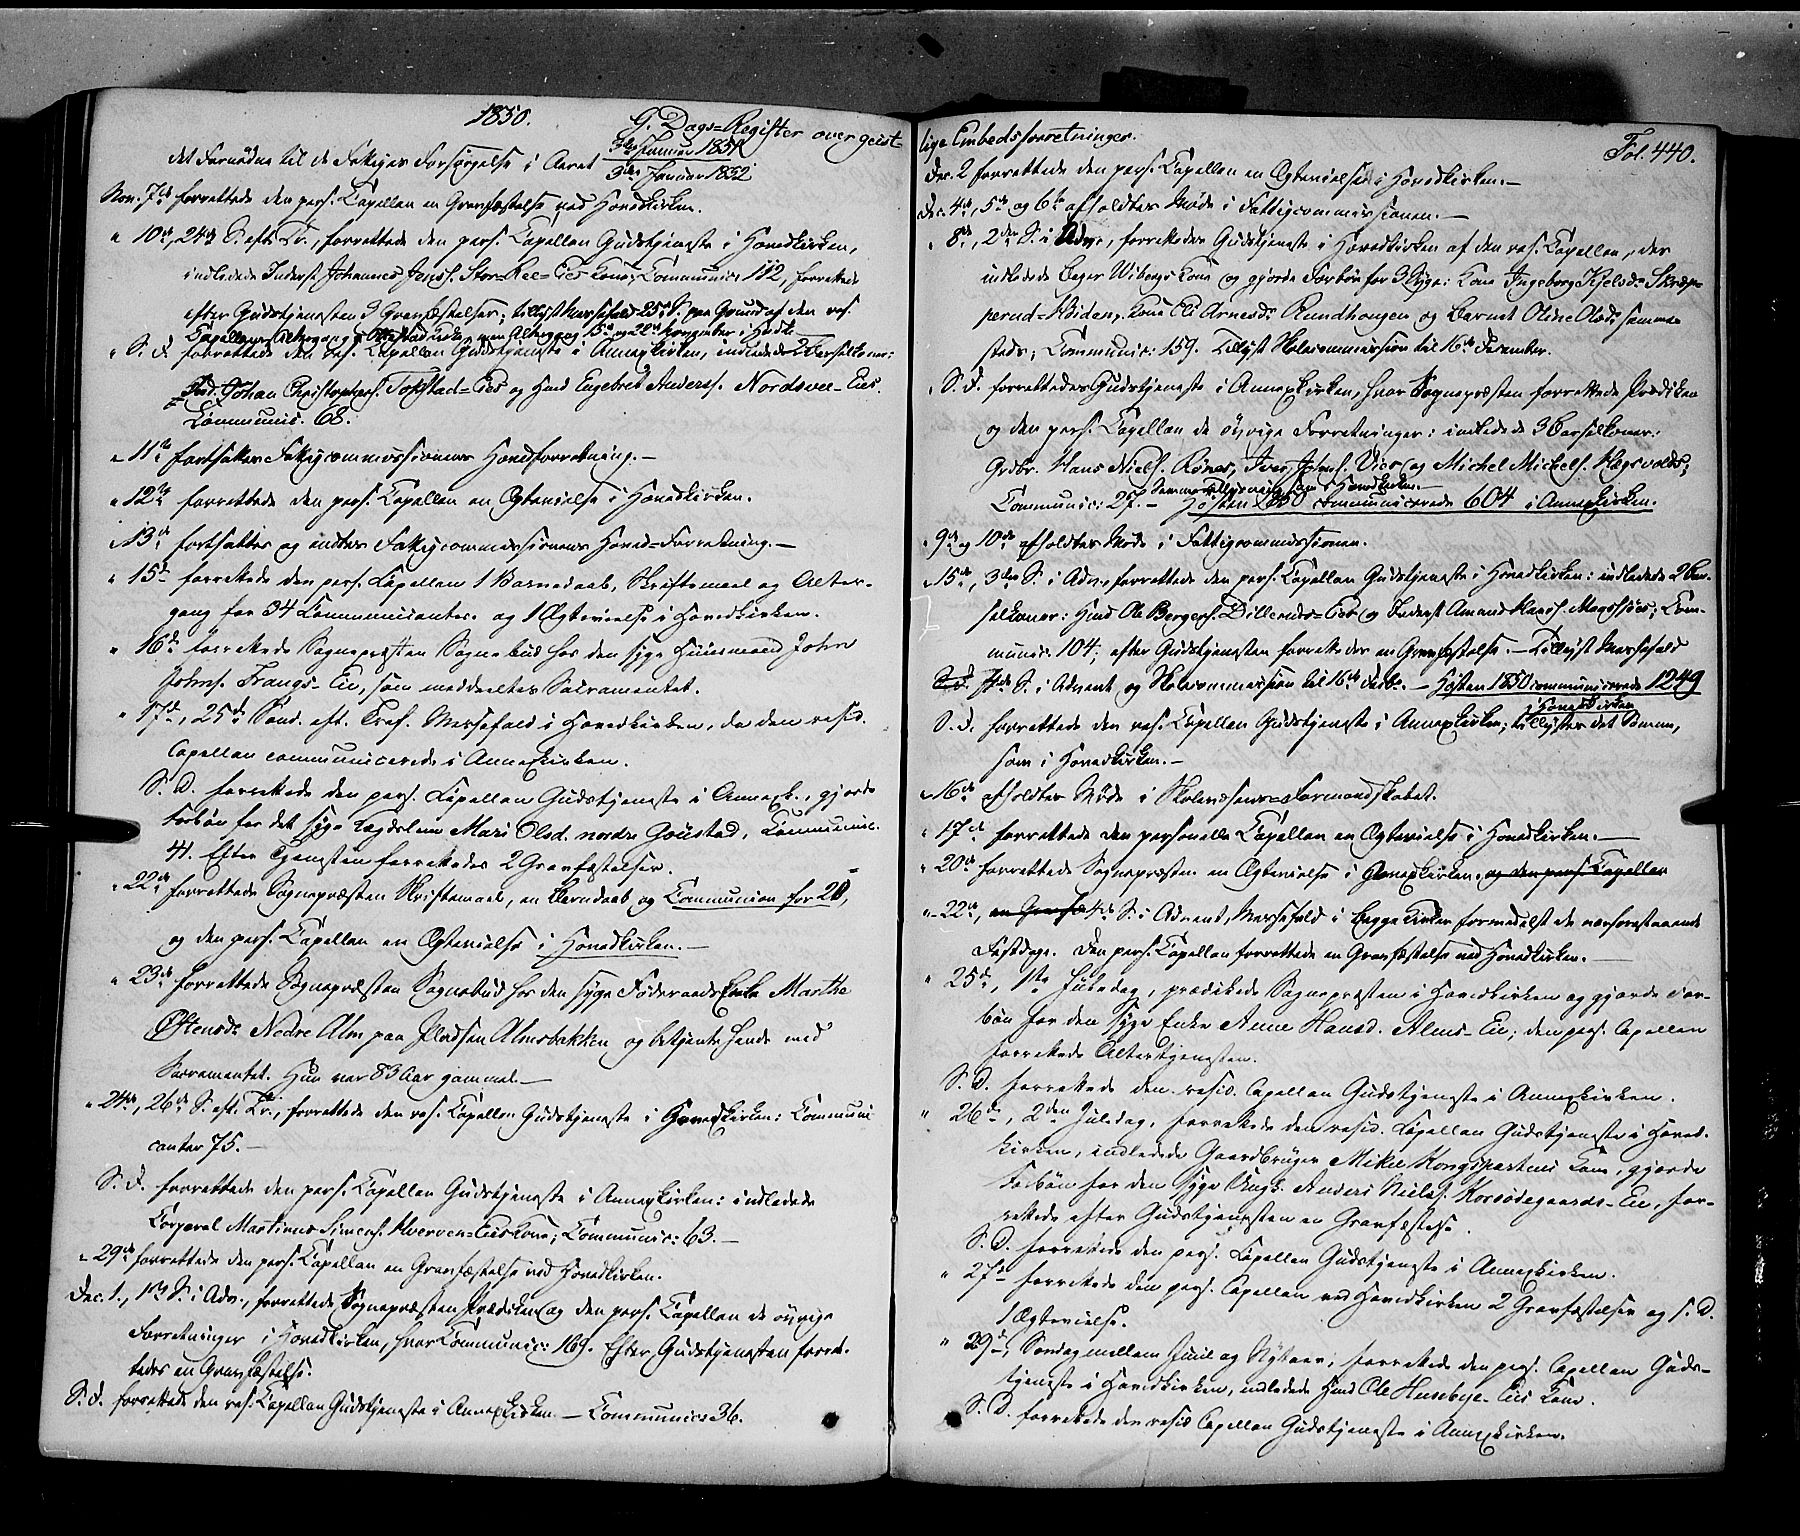 1850.
G. Dags-Register over geist-
det Fornødne til de Fattiges Forsørgelse i Aaret 3die Januar 1851 3die Januar 1852
Nov. 7de forrettede den pers. Capellan en Gravfæstelse ved Hovedkirken.
" 10de, 24de S. eft. Tr., forrettede den pers. Capellan Gudstjeneste i Hovedkirken,
indledede Inderst Johannes Jenss. Stor-Ree-Eies Kone; Communic: 112, forrettede
efter Gudstjenesten 3 Gravfæstelser; tillyst Messefald 25de S. paa Grund af den res.
Capellans Altergang i Annexkirken, samt Altergang 15de og 22de November i Hovedk.
" S. D. forrettede den res. Capellan Gudstjeneste i Annexkirken, indledede 2 Barselkoner:
Ind. Johan Christophers. Tokstad-Eies og Hmd Engebret Anderss. Nordsvee-Eies.
Communic. 68.
" 11te fortsattes Fattigcommissionens Hovedforretning.—
" 12te forrettede den pers. Capellan en Ægtevielse i Hovedkirken.
" 13de fortsattes og endtes Fattigcommissionens Hoved-Forretning.—
" 15de forrettede den pers. Capellan 1 Barnedaab, Skriftemaal og Alter-
gang for 34 Communicanter og 1 Ægtevielse i Hovedkirken.
" 16de forrettede Sognepræsten Sognebud hos den syge Huusmand John
Johns. Frangs-Eie, som meddeeltes Sacramentet.
" 17de, 25de Sønd. eft. Tref. Messefald i Hovedkirken, da den resid.
Capellan communicerede i Annexkirken.
S. D. forrettede den pers. Capellan Gudstjeneste i Annexk., gjorde
Forbøn for det syge Lægdslem Mari Olsd. nordre Goustad, Communic.
41. Efter Tjenesten forrettedes 2 Gravfæstelser.
" 22de forrettede Sognepræsten Skriftemaal, en Barnedaab og Communion for 20,
og den pers. Capellan en Ægtevielse i Hovedkirken.—
" 23de forrettede Sognepræsten Sognebud hos den syge Føderaads Enke Marthe
Østensdr Nedre Alm paa Pladsen Almsbakken og betjente hende med
Sacramentet. Hun var 83 Aar gammel.—
" 24de, 26de S. eft. Tr., forrettede den res. Capellan Gudstjeneste i Hovedkirken: Communi
canter 75.—
S. D. forrettede den pers. Capellan Gudstjeneste i Annexkirken: indledede
Corporal Martinus Simens. Kverven-Eies Kone; Communic: 63.—
" 29de forrettede den pers. Capellan en Gravfæstelse ved Hovedkirken.
Dec. 1., 1ste S. i Adv., forrettede Sognepræsten Prædiken og den pers. Capellan de øvrige
Forretninger i Hovedkirken, hvor Communic: 169. Efter Gudstjenesten forret-
tedes en Gravfæstelse.
S. D. forrettede den res. Capellan Gudstjeneste i Annexkirken.— Communic: 36.
lige Embedsforretninger.
Fol. 440.
Dec. 2 forrettede den pers. Capellan en Ægtevielse i Hovedkirken.—
Dec. 4de, 5te og 6te afholdtes Møde i Fattigcommissionen.—
" 8de, 2den S. i Adv., forrettedes Gudstjeneste i Hovedkirken af den res. Capellan, der
indledede Bager Wibergs Kone og gjorde Forbøn for 3 Syge: Kone Ingeborg Kjelsdr Skræp-
perud-Eiden, Kone Eli Arnesdr Rundhougen og Barnet Oline Olsdr samme-
steds; Communic: 159. Tillyst Skolecommission til 16de December.
" S. D. forrettedes Gudstjeneste i Annexkirken, hvor Sognepræsten forrettede Prædiken
og den pers. Capellan de øvrige Forretninger: indledede 3 Barselkoner:
Grdbr. Hans Niels. Rønes, Iver Johns. Vies og Michel Mickels. Hægsvolds;
Communic: 27.— Samme Tillysning som i Hovedkirken.— Høsten 1850 communicerede 604 i Annexkirken.
" 9de og 10de afholdtes Møde i Fattigcommissionen.
" 15de, 3die S. i Adv., forrettede den pers. Capellan Gudstjeneste i Hovedkirken: indledede 2 Bar-
selkoner: Hmd Ole Bergers. Dillerud-Eies og Inderst Amund Hanss. Mogstues; Com-
munic: 104; efter Gudstjenesten forrettedes en Gravfæstelse.— Tillyst Messefald
S. D. 4de S. i Advent og Skolecommission til 16de Decbr.— Høsten 1850 communicerede 1249
i Hovedkirken
S. D. forrettede den res. Capellan Gudstjeneste i Annexkirken; tillystes det Samme,
som i Hovedkirken.—
" 16de afholdtes Møde i Skolevæsens-Formandskabet.
" 17de forrettede den personelle Capellan en Ægtevielse i Hovedkirken.—
" 20de forrettede Sognepræsten en Ægtevielse i Annexkirken. og den pers. Capellan
" 22de, en Gravfæ 4de S. i Advent, Messefald i begge Kirker formedelst de nærforestaaende
Festdage. Den pers. Capellan forrettede en Gravfæstelse ved Hovedkirken.—
" 25de, 1ste Juledag, prædikede Sognepræsten i Hovedkirken og gjorde For-
bøn for den syge Enke Anne Hansd. Alms-Eie; den pers. Capellan
forrettede Altertjenesten.
S. D. forrettede den resid. Capellan Gudstjeneste i Annexkirken.
" 26de, 2den Juledag, forrettede den resid. Capellan Gudstjeneste i Hoved-
kirken, indledede Gaardbruger Mikel Kongspartens Kone, gjorde
Forbøn for den syge Ungk. Anders Nielss. Korsødegaards-Eie, for-
rettede efter Gudstjenesten en Gravfæstelse.
S. D. forrettede den pers. Capellan Gudstjeneste i Annexkirken.
" 27de forrettede den pers. Capellan ved Hovedkirken 2 Gravfæstelser og S. D.
1 Ægtevielse.
" 29de, Søndag mellem Juul og Nytaar, forrettede den pers. Capellan Guds-
tjeneste i Hovedkirken, indledede Hmd Ole Husebye-Eies Kone.
S. D. forrettede den resid Capellan Gudstjeneste i Annexkirken.